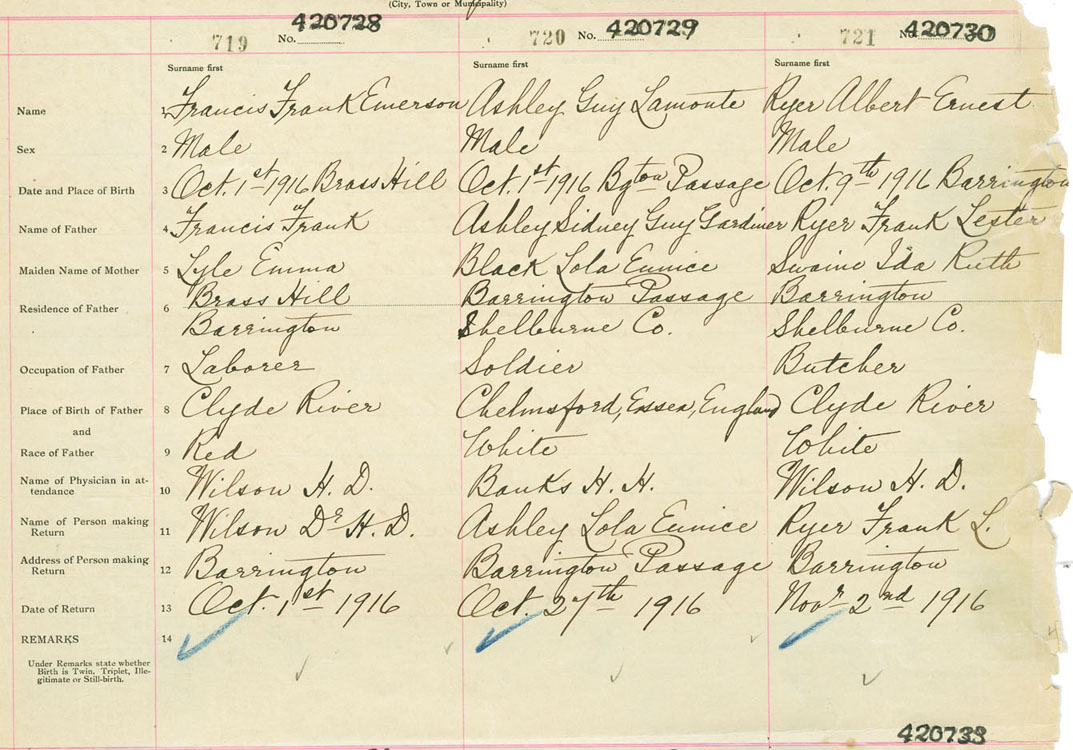 (City, Town or Municipality)
719 No. 420728 720 No. 420729 721 No. 420730
Surname first Surname first Surname first
Name 1 Francis Frank Emerson Ashley Guy Lamonte Ryer Albert Ernest
Sex 2 Male Male Male
Date and Place of Birth 3 Oct. 1st 1916 Brass Hill Oct. 1st 1916 Bgton Passage Oct. 9th 1916 Barrington
Name of Father 4 Francis Frank Ashley Sidney Guy Gardiner Ryer Frank Lester
Maiden Name of Mother 5 Lyle Emma Black Lola Eunice Swaine Ida Ruth
Residence of Father 6 Brass Hill Barrington Passage Barrington
Barrington Shelburne Co. Shelburne Co.
Occupation of Father 7 Laborer Soldier Butcher
Place of Birth of Father 8 Clyde River Chelmsford, Essex, England Clyde River
and
Race of Father 9 Red White White
Name of Physician in at-
tendance 10 Wilson H. D. Banks H. H. Wilson H. D.
Name of Person making
Return 11 Wilson Dr H. D. Ashley Lola Eunice Ryer Frank L.
Address of Person making
Return 12 Barrington Barrington Passage Barrington
Date of Return 13 Oct. 1st 1916 Oct. 27th 1916 Novr 2nd 1916
REMARKS 14
Under Remarks state whether
Birth is Twin, Triplet, Ille-
gitimate or Still-birth.
420733